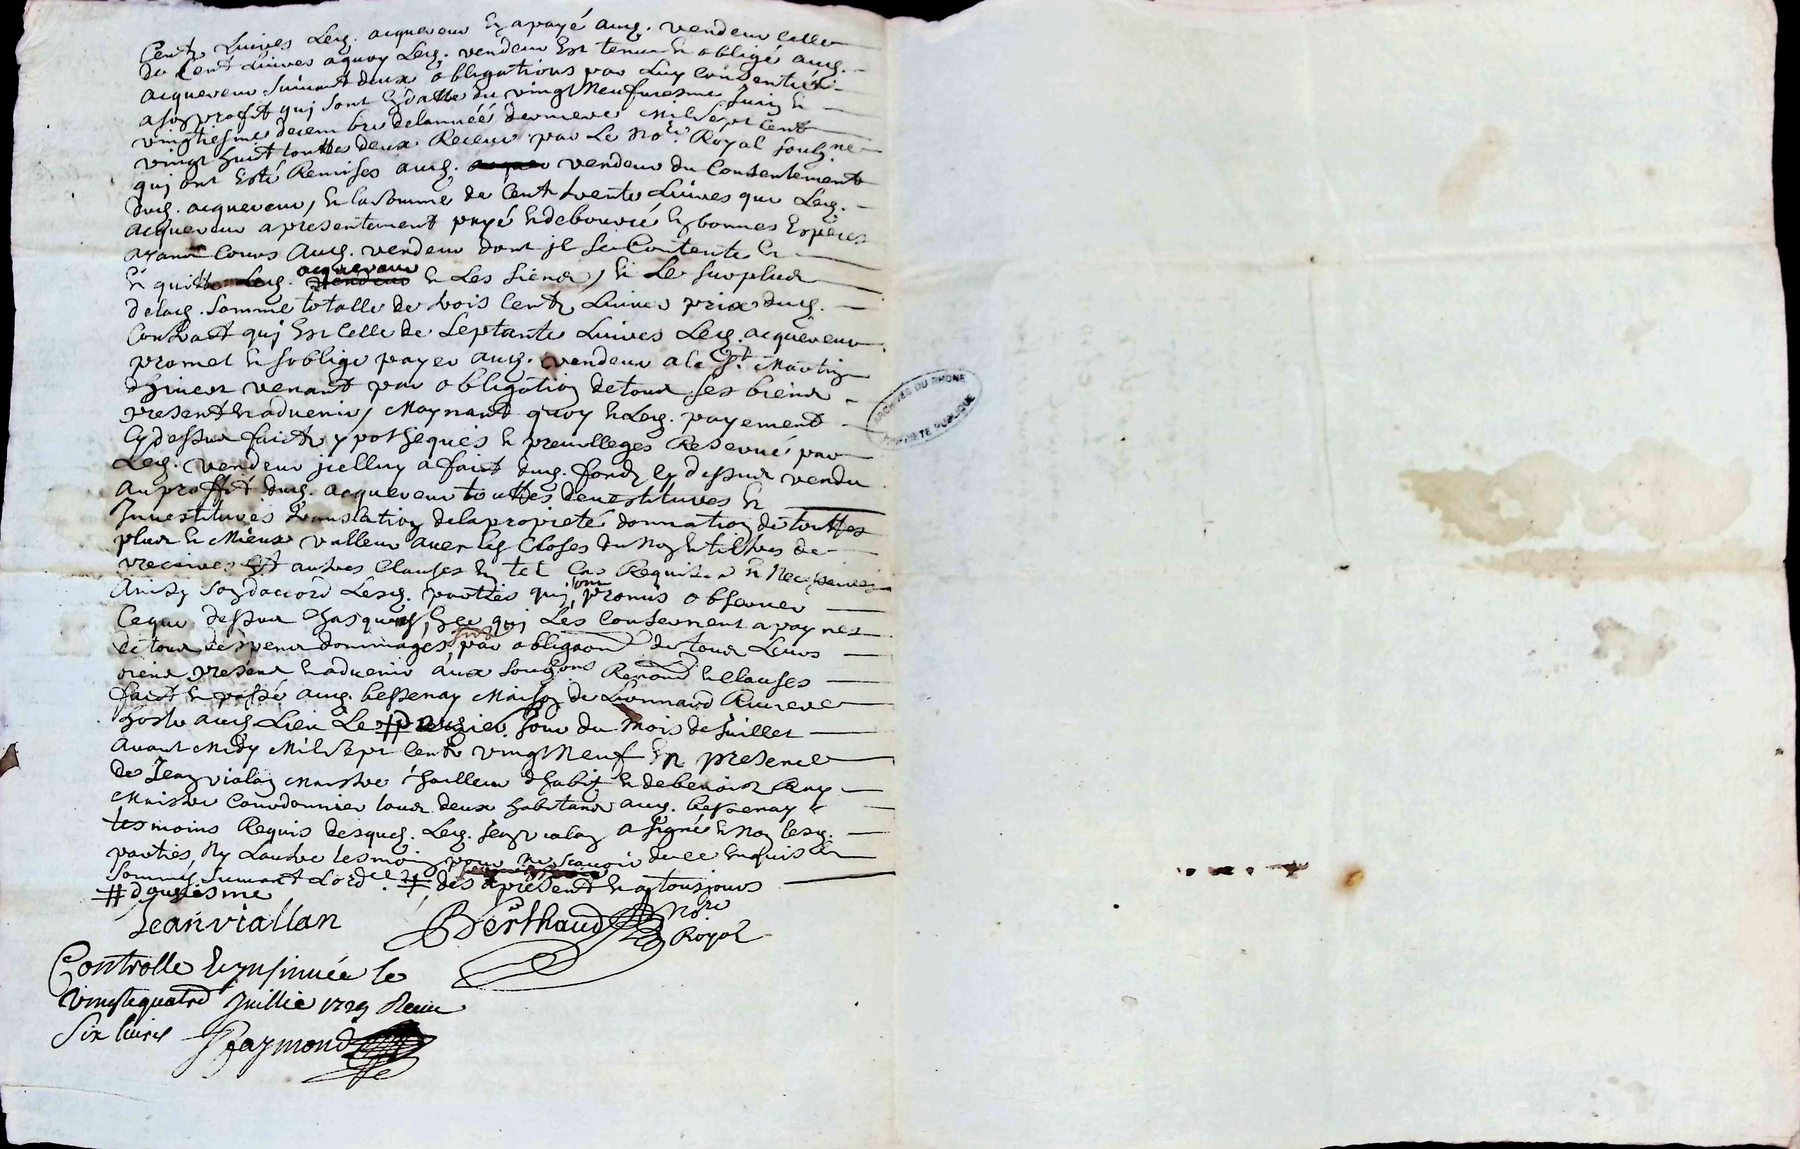 Cent Livres Led. acquereur En a payé aud. vendeur celle
de Cent Livres a quoy Led. vendeur Est tenu et obligé aud.
acquereur suivant deux obligations par Luy Consenties
a son proffit qui sont En datte du vingt Neufuiesme Juin et
vingtiesme decembre de lannéé derniere Mil sept Cent
vingt huit toutte deux Receue par Le nore. Royal soubz.né
qui ont Esté Remises aud. vendeur du Consentement
dud. acquereur, et la somme de Cent trente Livres que Led.
acquereur a presentement payé et debource En bonnes Especes
ayant Cours Aud. vendeur dont jl se Contente et
En quitte Led. acquereur et Les siens, et Le surplus
de lad. somme totalle de trois Cents Livres prix dud.
Contract qui Est Celle de Septante Livres Led. acquereur
promet et soblige payer aud. vendeur a la St. Martin
dhiuer venant par obligation de tous ses biens
present et aduenir, Moynant quoy et Led. payement
Cy dessus faict ypotheques et preuilleges Reserué par
Led. vendeur jcelluy a fait dud. fondz Cy dessus vendu
au proffit dud. acquereur touttes deuestitures et
Inuestitures translation de la proprieté donnation de touttes
plus et Mieux valleur auec les Closes du Non et tiltres de
precaires Et autres Clauses En tel Cas Requises et Necessaires
Ainsy son daccord Lesd. parties qui ont promis observer
Ce que dessus Chasqune, En ce qui Les Concernent a paynes
de tous despens dommages, par obligaon de tous Leurs
biens present et aduenir aux soubzons Renond et Clauses
faict et passé aud. bessenay Maison de Leonnard
hoste aud. Lieu Le # Jour du Mois de Juillet
avant Midy Mil sept Cent vingt Neuf En presence
de Jean vialan Maistre thailleur dhabit et de benoist
Maistre Courdonnier tous deux habitans aud. bessenay
tesmoins Requis desquels. Led. Jean vialan a signé et Non lesd.
parties, Ny Lautre tesmoin pour ne scauoir de ce Enquis et
sommés suivant Lord.ce ‡ des apresent et a tousjours
# douziesme
Jean viallan
Berthaud Nore. Royal
Controlle et Insinuée le
vingtequatre Juillie 1729 Receu
Six livres Raymond
ARCHIVES DU RHONE
PROPRIETE PUBLIQUE